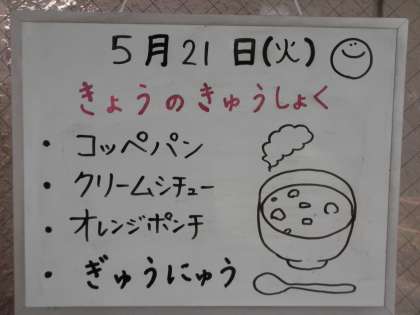 5月21日(火)
きょうのきゅうしょく
・コッペパン
・クリームシチュー
・オレンジポンチ
・ぎゅうにゅう